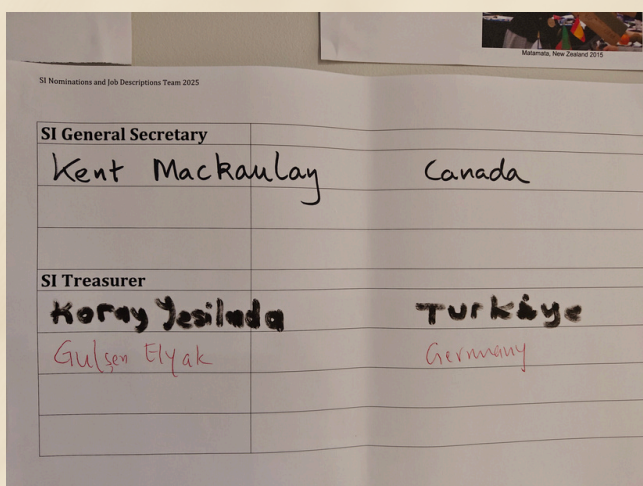 Matamata, New Zealand 2015
SI Nominations and Job Descriptions Team 2025
SI General Secretary
Kent Mackaulay Canada
SI Treasurer
Koray Yesilada Turkiye
Gulşen Elyak Germany